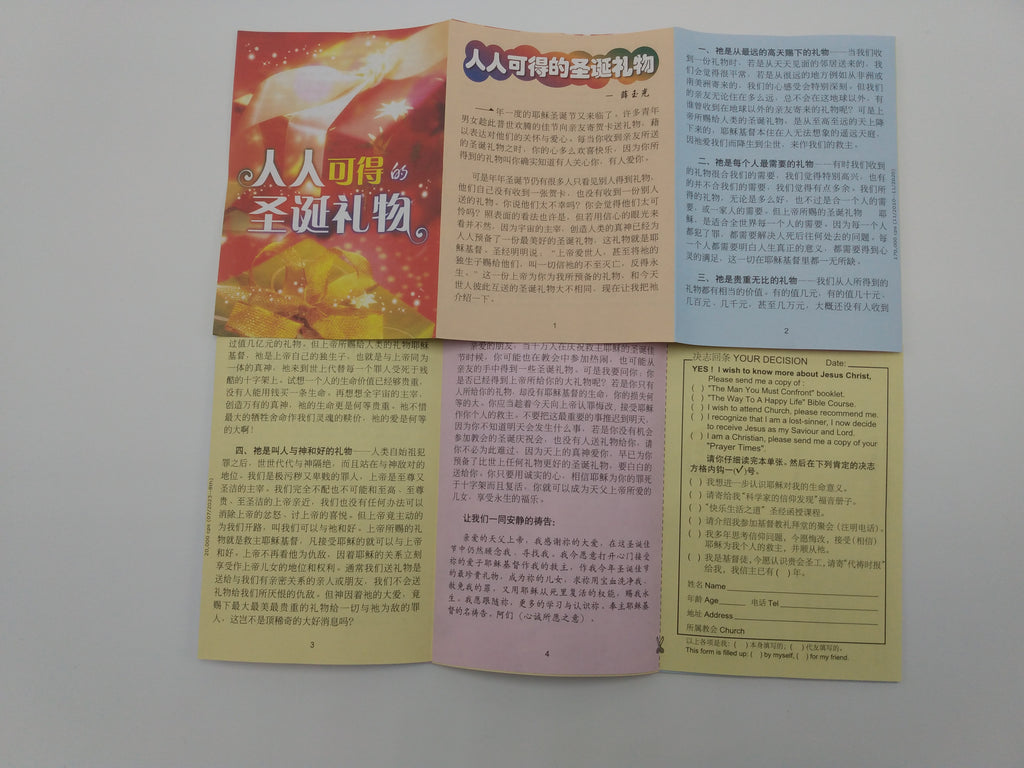 人人可得的
圣诞礼物
人人可得的圣诞礼物
— 薛玉光
一年一度的耶稣圣诞节又来临了，许多青年
男女趁此普世欢腾的佳节向亲友寄贺卡送礼物，藉
以表达对他们的关怀与爱心。每当你收到亲友所送
的圣诞礼物之时，你的心多么欢喜快乐，因为你所
得到的礼物叫你确实知道有人关心你，有人爱你。
可是年年圣诞节仍有很多人只看见别人得到礼物，
他们自己没有收到一张贺卡，也没有收到一份别人
送的礼物。你说他们太不幸吗？你会觉得他们太可
怜吗？照表面的看法也许是，但若用信心的眼光来
看并不然，因为宇宙的主宰，创造人类的真神已经为
人人预备了一份最美好的圣诞礼物，这礼物就是耶
稣基督。圣经明明说，“上帝爱世人，甚至将祂的
独生子赐给他们，叫一切信祂的不至灭亡，反得永
生。”这一份上帝为你为我所预备的礼物，和今天
世人彼此互送的圣诞礼物大不相同，现在让我把祂
介绍一下。
1
一、祂是从最远的高天赐下的礼物——当我们收
到一份礼物时，若是从天天见面的邻居送来的，我
们会觉得很平常，若是从很远的地方例如从非洲或
南美洲寄来的，我们的心感受会特别深刻。但我们
的亲友无论住在多么远，总不会在这地球以外，有
谁曾收到在地球以外的亲友寄来的礼物呢？可是上
帝所赐给人类的圣诞礼物，是从至高至远的天上降
下来的，耶稣基督本住在人无法想象的遥远天庭，
因祂爱我们而降生到尘世，来作我们的救主。
二、祂是每个人最需要的礼物——有时我们收到
的礼物很合我们的需要，我们觉得特别高兴，也有
的并不合我们的需要，我们觉得有点多余。我们所
得的礼物，无论是多么好，也不过是合一个人的需
要，或一家人的需要。但上帝所赐的圣诞礼物 耶
稣，是适合全世界每一个人的需要。因为每一个人
都犯了罪，都需要解决人死后往何处去的问题。每
一个人都需要明白人生真正的意义，都需要得到心
灵的满足，这一切在耶稣基督里都一无所缺。
三、祂是贵重无比的礼物——我们从人所得到的
礼物都有相当的价值。有的值几元，有的值几十元，
几百元，几千元，甚至几万元，大概还没有人收到
2
过值几亿元的礼物。但上帝所赐给人类的礼物耶稣
基督，祂是上帝自己的独生子，也就是与上帝同为
一体的真神，祂来到世上代替每一个罪人受死于残
酷的十字架上，试想一个人的生命价值已经够贵重，
没有人能用钱买一条生命。再想想全宇宙的主宰，
创造万有的真神，祂的生命更是何等贵重。祂不惜
最大的牺牲舍命作我们灵魂的赎价，祂的爱是何等
的大啊！
四、祂是叫人与神和好的礼物——人类自始祖犯
罪之后，世世代代与神隔绝，而且站在与神敌对的
地位。我们是极污秽又卑贱的罪人，上帝是至尊又
圣洁的主宰，我们完全不配也不可能和至高、至尊
贵、至圣洁的上帝亲近，我们也没有任何办法可以
消除上帝的忿怒、讨上帝的喜悦。但上帝竟主动的
为我们开路，叫我们可以与祂和好。上帝所赐的礼
物就是耶稣基督，凡接受耶稣的就可以与上帝
和好。上帝不再看他为仇敌，因着耶稣的关系立刻
享受作上帝儿女的地位和权利。通常我们送礼物是
送给与我们有亲密关系的亲人或朋友，我们不会送
礼物给我们所厌恨的仇敌。但神因着祂的大爱，竟
赐下最大最美最贵重的礼物给一切与祂为敌的罪
人，这岂不是顶稀奇的大好消息吗？
3
亲爱的朋友，当千万人在庆祝救主耶稣的圣诞佳
节时候，你可能也在教会中参加热闹，也可能从
亲友的手中得到一些圣诞礼物，可是我要问你：你
是否已经得到上帝所给你的大礼物呢？若是你只有
人所给你的礼物，却没有耶稣基督的生命，你的损失何
等的大。你应当趁着今天向上帝认罪悔改，接受耶稣
作你个人的救主，不要把这最重要的事推迟到明天，
因为你不知道明天会发生什么事。若是你没有机会
参加教会的圣诞庆祝会，也没有人送礼物给你，请
你不必为此难过，因为天上的真神爱你，早已为你
预备了比世上任何礼物更好的圣诞礼物，要白白的
送给你。你只要用诚实的心，相信耶稣为你的罪死
于十字架而且复活，你就可以成为天父上帝所爱的
儿女，享受永生的福乐。
让我们一同安静的祷告：
亲爱的天父上帝，我感谢祢的大爱，在这圣诞佳
节中仍然顾念我、寻找我。我今愿意打开心门接受
祢的爱子耶稣基督作我的救主，作我今年圣诞佳节
的最珍贵礼物，成为祢的儿女，求祢用宝血洗净我，
赦免我的罪，又用耶稣从死里复活的权能，赐我永
生。我愿跟随祢，更多的学习与认识祢。奉主耶稣基
督的名祷告。阿们（心诚所愿之意）。
4
决志回条 YOUR DECISION Date:
YES ! I wish to know more about Jesus Christ,
Please send me a copy of :
( ) "The Man You Must Confront" booklet.
( ) "The Way To A Happy Life" Bible Course.
( ) I wish to attend Church, please recommend me.
( ) I recognize that I am a lost-sinner, I now decide
to receive Jesus as my Saviour and Lord.
( ) I am a Christian, please send me a copy of your
"Prayer Times".
请你仔细读完本单张。然后在下列肯定的决志
方格内钩一(✓)号。
( ) 我想进一步认识耶稣对我的生命意义。
( ) 请寄给我“科学家的信仰发现”福音册子。
( ) “快乐生活之道” 圣经函授课程。
( ) 请介绍我参加基督教礼拜堂的聚会（注明电话）。
( ) 我多年思考信仰问题，今愿悔改，接受（相信）
耶稣为我个人的救主，并顺从祂。
( ) 我是基督徒，今愿认识贵会圣工，请寄“代祷时报”
给我，我信主已有（ ）年。
姓名 Name
年龄 Age 电话 Tel
地址 Address
所属教会 Church
以上各项是我：( ) 本身填写的；( ) 代友填写的。
This form is filled up: ( ) by myself, ( ) for my friend.